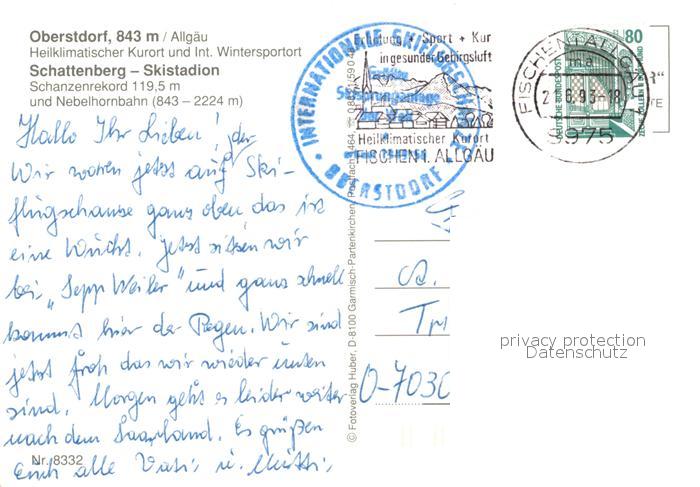 Oberstdorf, 843 m / Allgäu
Heilklimatischer Kurort und Int. Wintersportort
Schattenberg – Skistadion
Schanzenrekord 119,5 m
und Nebelhornbahn (843 – 2224 m)
Hallo Ihr Lieben!
Wir waren jetzt auf der Ski-
flugschanse ganz oben das ist
eine Wucht. Jetzt sitzen wir
bei „Sepp Weiler" und ganz schnell
kommt hier der Regen. Wir sind
jetzt froh das wir wieder unten
sind. Morgen geht's leider weiter
nach dem Saarland. Es grüßen
Euch alle Vati u. Mutti,
Nr. 8332
© Fotoverlag Huber, D-8100 Garmisch-Partenkirchen, Postfach
INTERNATIONALE
OBERSTDORF
Erholung + Sport + Kur
in gesunder Gebirgsluft
Heilklimatischer Kurort
FISCHEN I. ALLGÄU
FISCHEN I. ALLGÄU
8975
80
DEUTSCHE BUNDESPOST
O-7030
privacy protection
Datenschutz